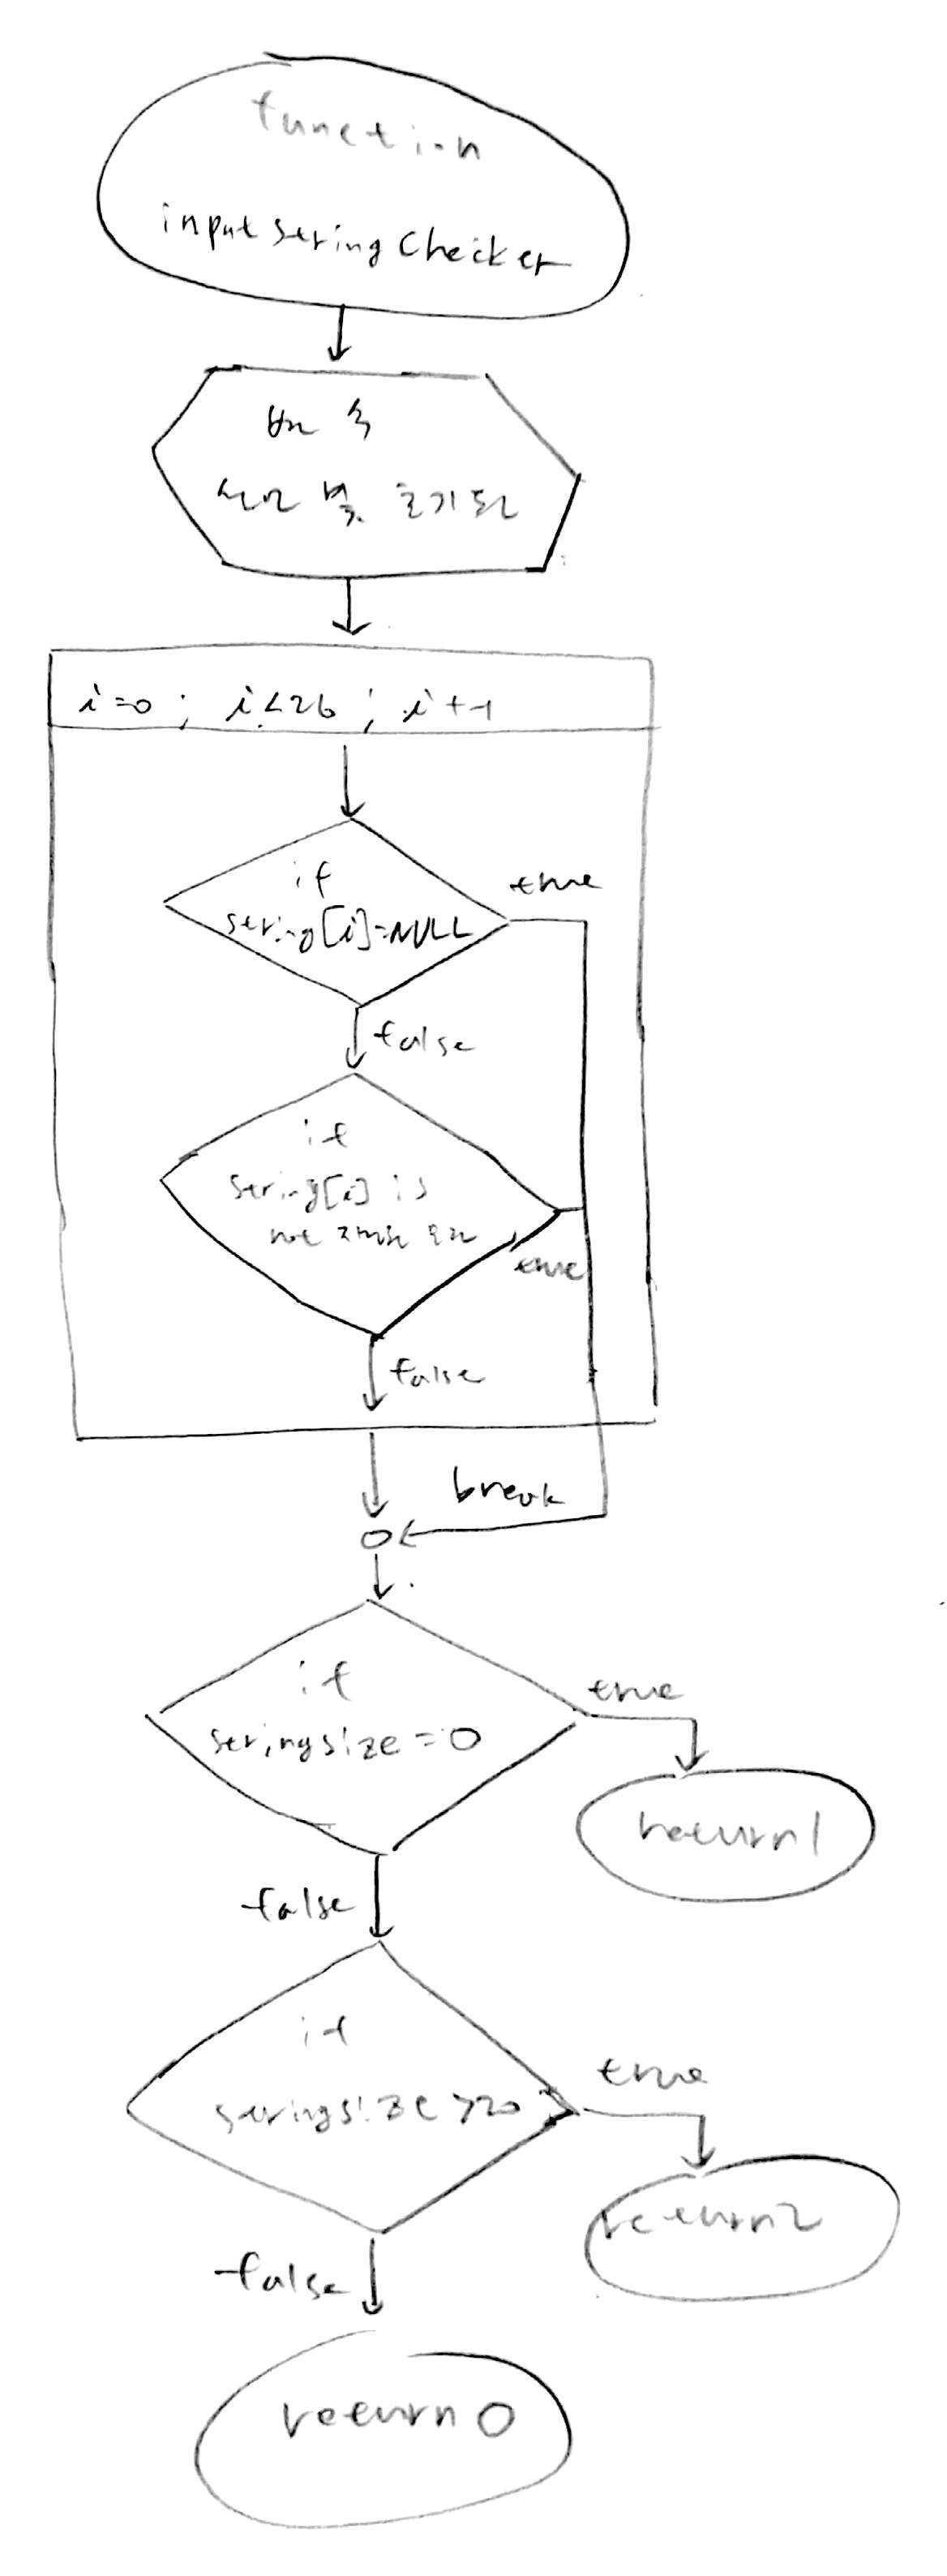 function
input string checker
변수
선언 및 초기화
i=0 ; i<26 ; i++
if
string[i]=NULL
true
false
if
string[i] is
not
true
false
break
if
stringsize=0
true
return 1
false
if
stringsize>20
true
return 2
false
return 0